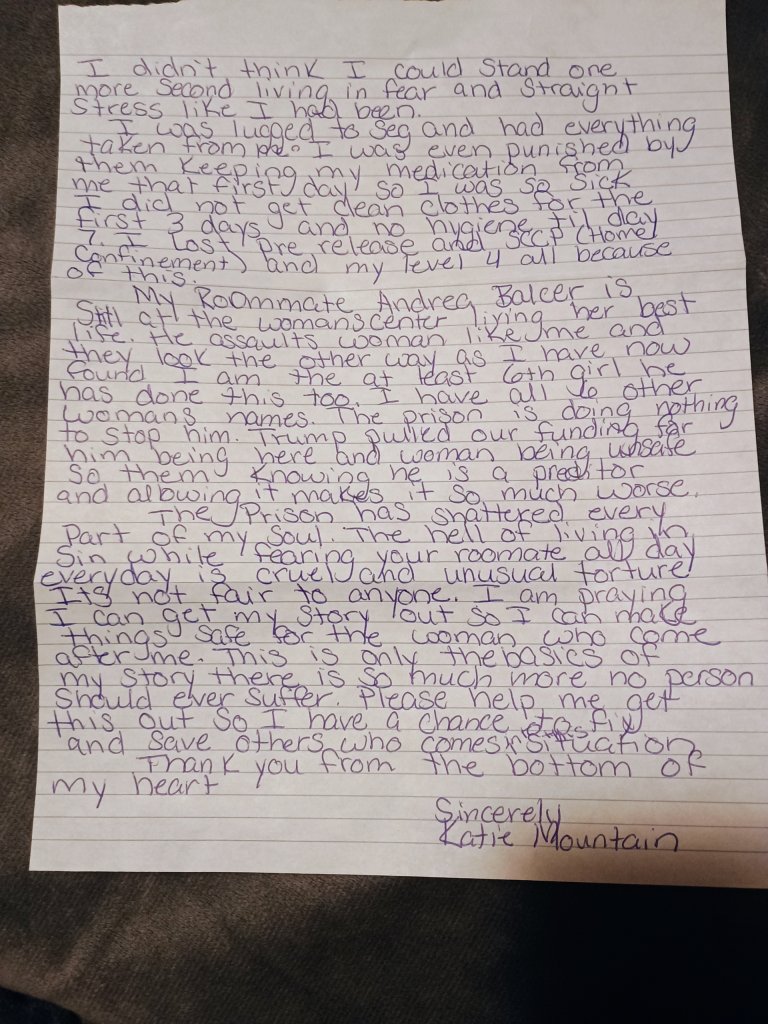 I didn't think I could stand one
more second living in fear and straight
stress like I had been.
I was lugged to seg and had everything
taken from me. I was even punished by
them keeping my medication from
me that first day so I was so sick
I did not get clean clothes for the
first 3 days and no hygiene til day
7. I lost pre release and SCCP (Home
Confinement) and my level 4 all because
of this.
My Roommate Andrea Balcer is
Still at the womanscenter living her best
life. He assaults woman like me and
they look the other way as I have now
found I am the at least 6th girl he
has done this too. I have all 6 other
womans names. The prison is doing nothing
to stop him. Trump pulled our funding for
him being here and woman being unsafe
So them knowing he is a preditor
and allowing it makes it so much worse.
The Prison has shattered every
part of my soul. The hell of living in
Sin while fearing your roomate all day
everyday is cruel and unusual torture
Its not fair to anyone. I am praying
I can get my story out so I can make
things safe for the woman who come
after me. This is only the basics of
my story there is so much more no person
should ever suffer. Please help me get
this out so I have a chance to fix
and save others who comes situation
Thank you from the bottom of
my heart
Sincerely
Katie Mountain